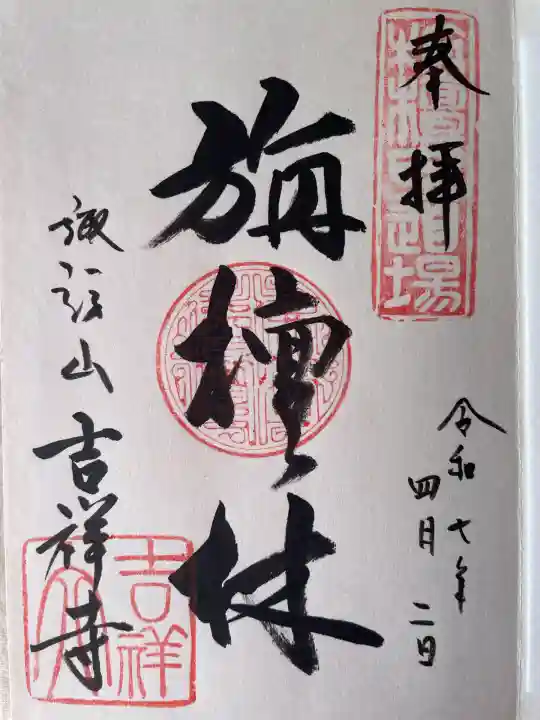 奉拝
令和七年
四月二日
旃檀林
諏訪山吉祥寺
栴檀林道場
吉祥寺